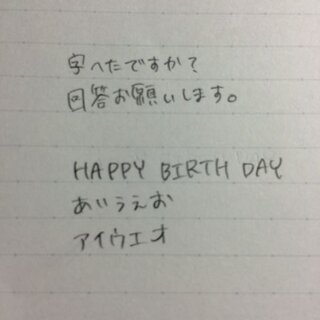 字へたですか?
回答お願いします。
HAPPY BIRTH DAY
あいうえお
アイウエオ